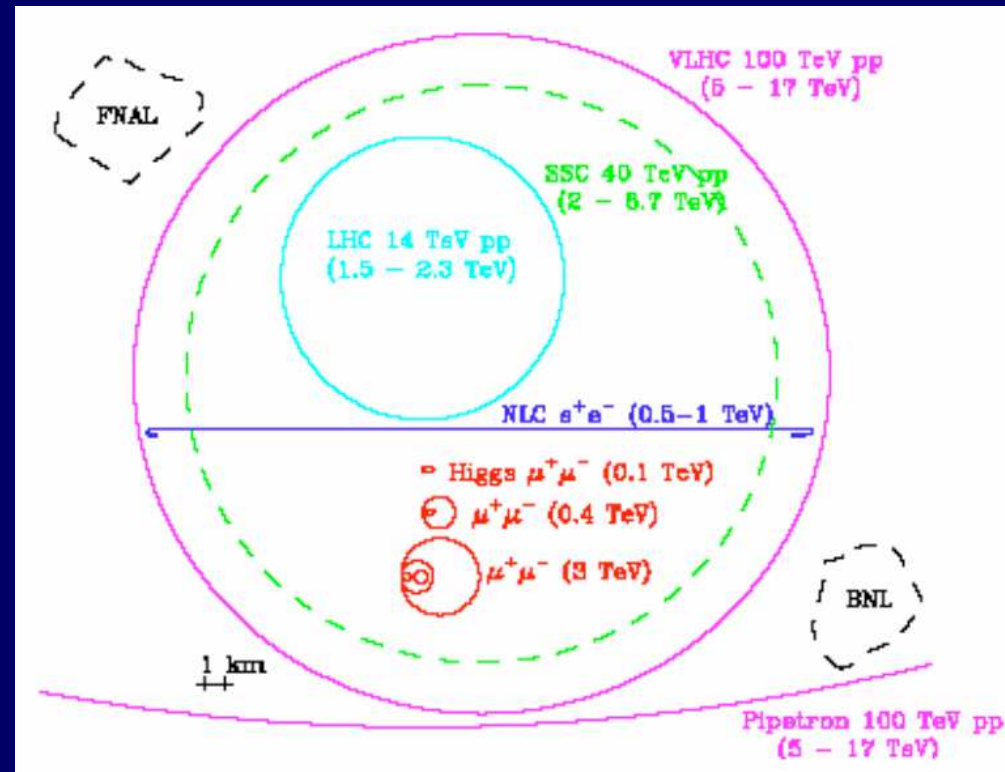 VLHC 100 TeV pp
(5 – 17 TeV)
FNAL
SSC 40 TeV pp
(2 – 5.7 TeV)
LHC 14 TeV pp
(1.5 – 2.3 TeV)
NLC e⁺e⁻ (0.5–1 TeV)
Higgs μ⁺μ⁻ (0.1 TeV)
μ⁺μ⁻ (0.4 TeV)
μ⁺μ⁻ (3 TeV)
BNL
1 km
Pipetron 100 TeV pp
(5 – 17 TeV)